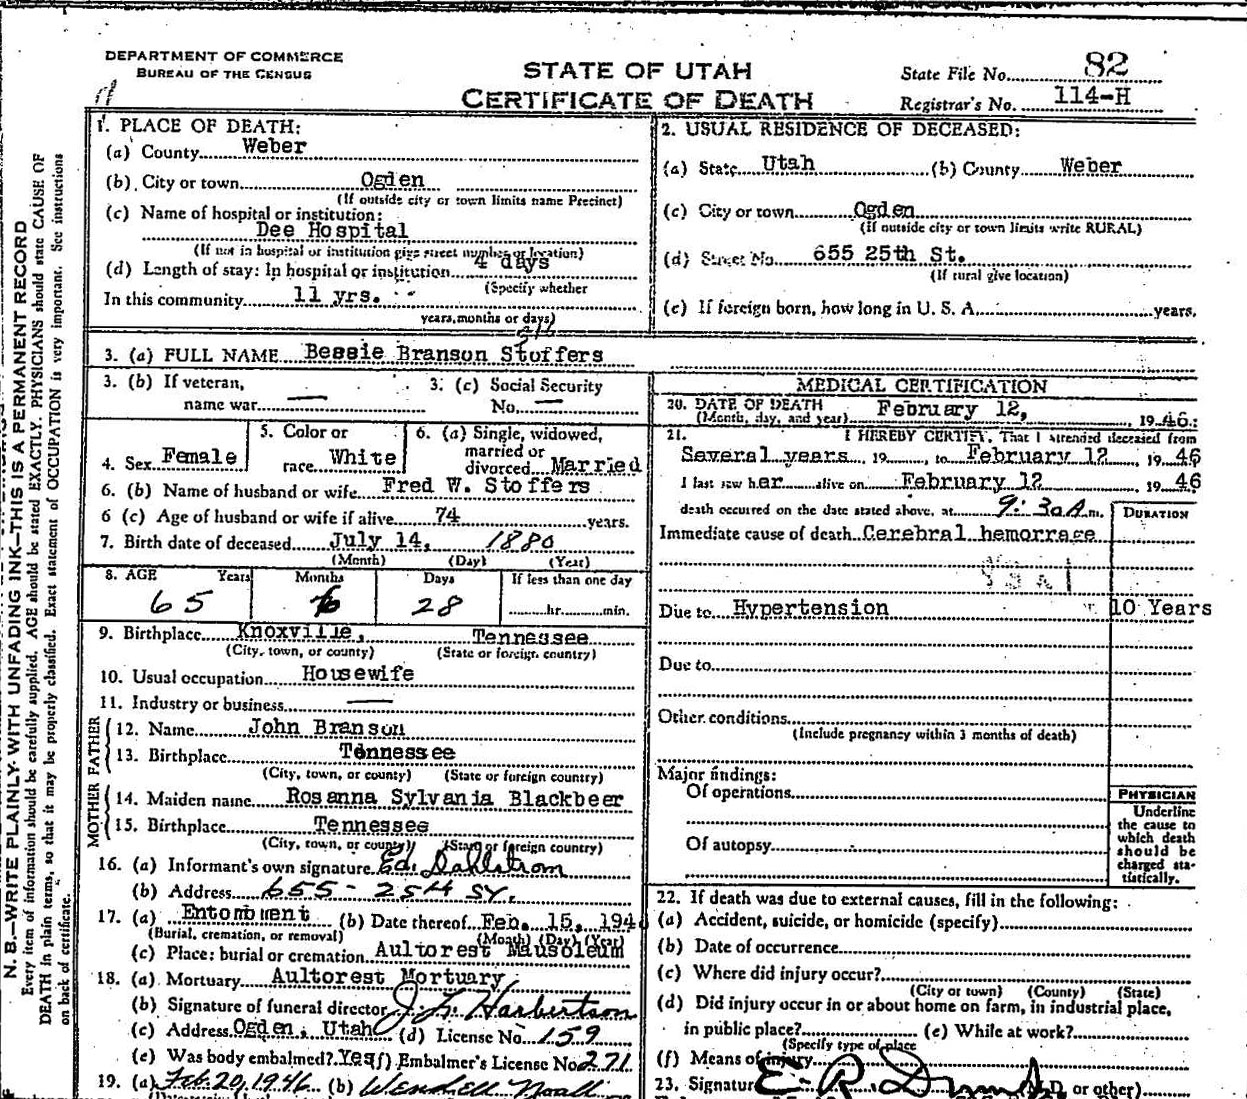 DEPARTMENT OF COMMERCE
BUREAU OF THE CENSUS
STATE OF UTAH
CERTIFICATE OF DEATH
State File No. 82
Registrar's No. 114-H
N. B.—WRITE PLAINLY WITH UNFADING INK—THIS IS A PERMANENT RECORD
Every item of information should be carefully supplied. AGE should be stated EXACTLY. PHYSICIANS should state CAUSE OF
DEATH in plain terms, so that it may be properly classified. Exact statement of OCCUPATION is very important. See instructions
on back of certificate.
1. PLACE OF DEATH:
(a) County Weber
(b) City or town Ogden
(If outside city or town limits name Precinct)
(c) Name of hospital or institution:
Dee Hospital
(If not in hospital or institution give street number or location)
(d) Length of stay: In hospital or institution 4 days
(Specify whether
In this community 11 yrs.
years, months or days)
2. USUAL RESIDENCE OF DECEASED:
(a) State Utah (b) County Weber
(c) City or town Ogden
(If outside city or town limits write RURAL)
(d) Street No. 655 25th St.
(If rural give location)
(e) If foreign born, how long in U. S. A. years.
3. (a) FULL NAME Bessie Branson Stoffers
3. (b) If veteran, 3. (c) Social Security
name war — No. —
4. Sex Female
5. Color or
race White
6. (a) Single, widowed,
married or
divorced Married
6. (b) Name of husband or wife Fred W. Stoffers
6 (c) Age of husband or wife if alive 74 years.
7. Birth date of deceased July 14, 1880
(Month) (Day) (Year)
8. AGE Years Months Days If less than one day
65 6 28 hr. min.
9. Birthplace Knoxville, Tennessee
(City, town, or county) (State or foreign country)
10. Usual occupation Housewife
11. Industry or business —
FATHER
12. Name John Branson
13. Birthplace Tennessee
(City, town, or county) (State or foreign country)
MOTHER
14. Maiden name Rosanna Sylvania Blackbeer
15. Birthplace Tennessee
(City, town, or county) (State or foreign country)
16. (a) Informant's own signature Ed. Dahlstrom
(b) Address 655 - 25th St.
17. (a) Entombment (b) Date thereof Feb. 15, 1946
(Burial, cremation, or removal) (Month) (Day) (Year)
(c) Place: burial or cremation Aultorest Mausoleum
18. (a) Mortuary Aultorest Mortuary
(b) Signature of funeral director J. L. Harbertson
(c) Address Ogden, Utah (d) License No. 159
(e) Was body embalmed? Yes (f) Embalmer's License No. 271
19. (a) Feb. 20, 1946 (b) Wendell Noall
MEDICAL CERTIFICATION
20. DATE OF DEATH February 12, 1946
(Month, day, and year)
21. I HEREBY CERTIFY, That I attended deceased from
Several years, 19 , to February 12, 1946
I last saw her alive on February 12, 1946
death occurred on the date stated above, at 9:30 A m.
DURATION
Immediate cause of death Cerebral hemorrage
Due to Hypertension 10 Years
Due to
Other conditions
(Include pregnancy within 3 months of death)
Major findings:
Of operations
Of autopsy
PHYSICIAN
Underline
the cause to
which death
should be
charged sta-
tistically.
22. If death was due to external causes, fill in the following:
(a) Accident, suicide, or homicide (specify)
(b) Date of occurrence
(c) Where did injury occur?
(City or town) (County) (State)
(d) Did injury occur in or about home on farm, in industrial place,
in public place? (e) While at work?
(Specify type of place
(f) Means of injury
23. Signature E. R. (M.D. or other)